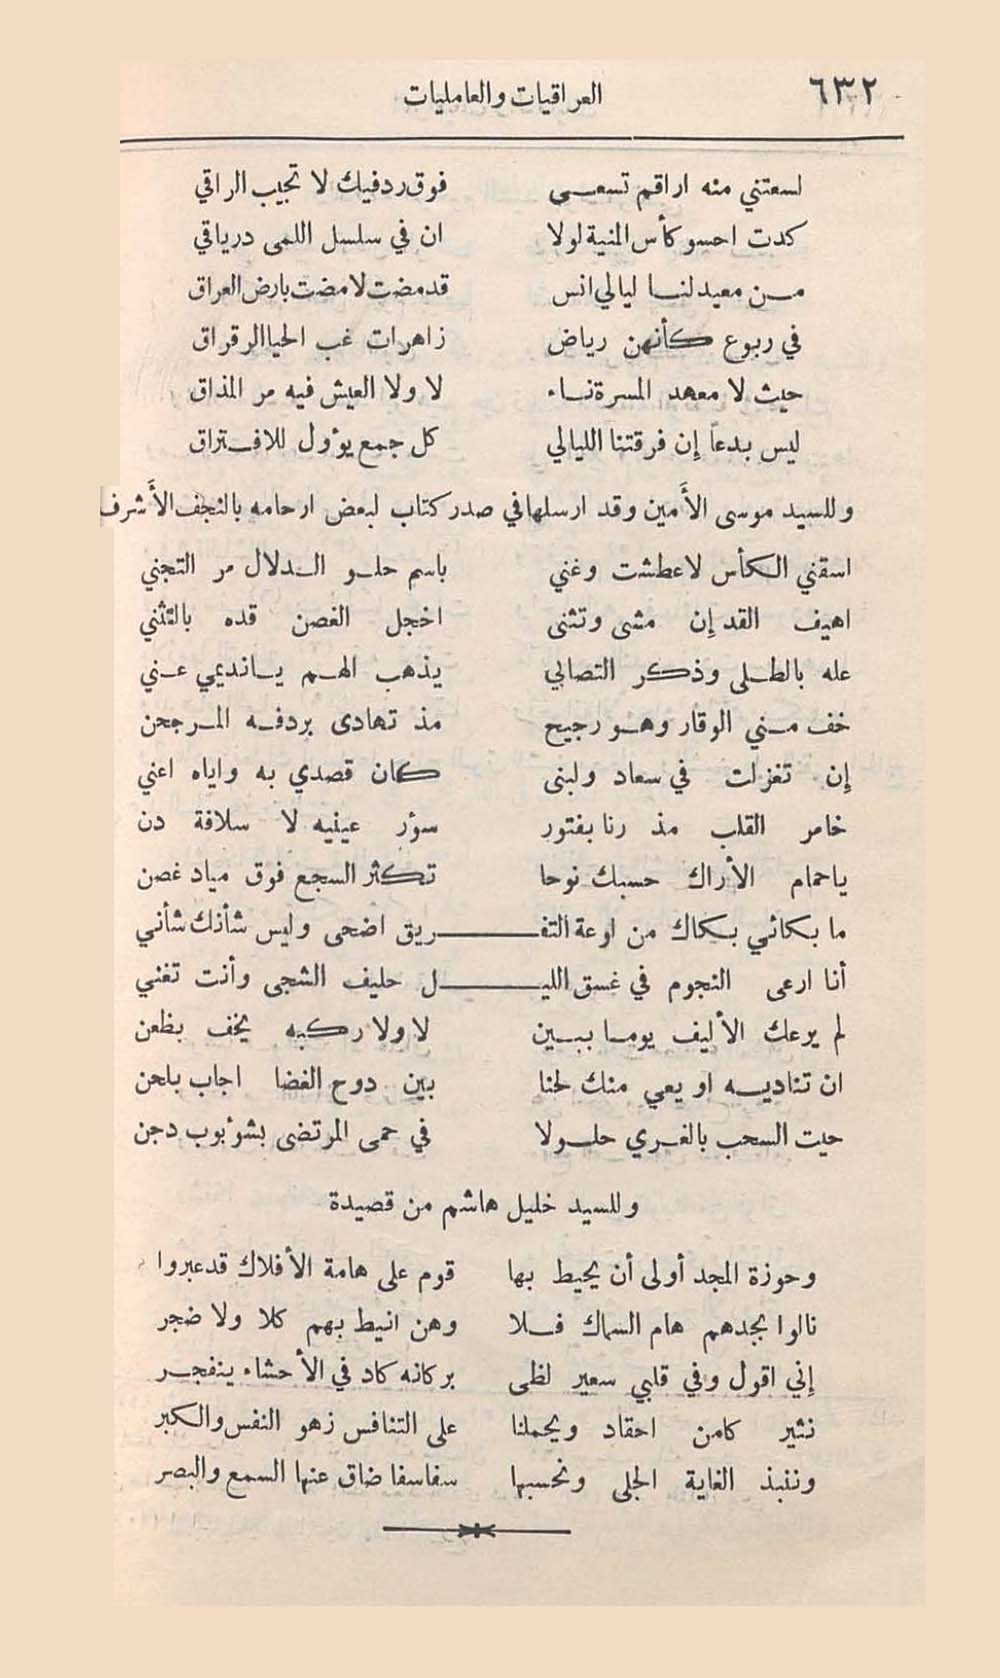 ٦٣٢ العراقيات والعامليات
لسعتني منه اراقم تسعى فوق ردفيك لا تجيب الراقي
كدت احسو كأس المنية لولا ان في سلسل اللمى درياقي
من معيد لنا ليالي انس قد مضت لا مضت بارض العراق
في ربوع كأنهن رياض زاهرات غب الحيا الرقراق
حيث لا معهد المسرة ناء لا ولا العيش فيه مر المذاق
ليس بدعاً إن فرقتنا الليالي كل جمع يؤول للافتراق
وللسيد موسى الأمين وقد ارسلها في صدر كتاب لبعض ارحامه بالنجف الأشرف
اسقني الكأس لا عطشت وغني باسم حلو الدلال مر التجني
اهيف القد إن مشى وتثنى اخجل الغصن قده بالتثني
عله بالطلى وذكر التصابي يذهب الهم يا نديمي عني
خف مني الوقار وهو رجيح مذ تهادى بردفه المرجحن
إن تغزلت في سعاد ولبنى كان قصدي به واياه اعني
خامر القلب مذ رنا بفتور سؤر عينيه لا سلافة دن
ياحمام الأراك حسبك نوحا تكثر السجع فوق مياد غصن
ما بكائي بكاك من لوعة التفـريق اضحى وليس شأنك شأني
أنا ارعى النجوم في غسق الليـل حليف الشجى وأنت تغني
لم يرعك الأليف يوما ببين لا ولا ركبه يخف بظعن
ان تناديه او يعي منك لحنا بين دوح الغضا اجاب بلحن
حيت السحب بالغري حلولا في حمى المرتضى بشؤبوب دجن
وللسيد خليل هاشم من قصيدة
وحوزة المجد أولى أن يحيط بها قوم على هامة الأفلاك قد عبروا
نالوا بجدهم هام السماك فلا وهن انيط بهم كلا ولا ضجر
إني اقول وفي قلبي سعير لظى بركانه كاد في الأحشاء ينفجر
نثير كامن احقاد ويحملنا على التنافس زهو النفس والكبر
وننبذ الغاية الجلى ونحسبها سفاسفا ضاق عنها السمع والبصر